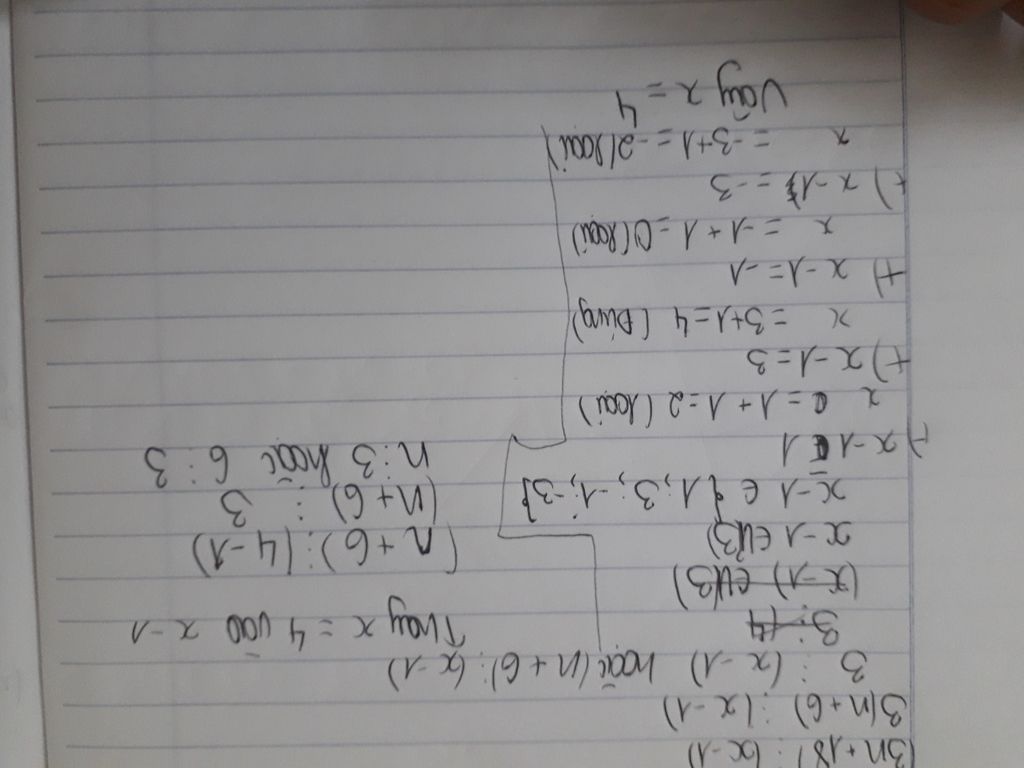 (3n + 18) ⋮ (x - 1)
3(n + 6) ⋮ (x - 1)
3 ⋮ (x - 1) hoặc (n + 6) ⋮ (x - 1)
3 ⋮ (4
(x - 1) ∈ Ư(3)
x - 1 ∈ Ư(3)
x - 1 ∈ {1; 3; -1; -3}
+) x - 1 = 1
x = 1 + 1 = 2 (loại)
+) x - 1 = 3
x = 3 + 1 = 4 (Đúng)
+) x - 1 = -1
x = -1 + 1 = 0 (loại)
+) x - 1 = -3
x = -3 + 1 = -2 (loại)
Vậy x = 4
Thay x = 4 vào x - 1
(n + 6) ⋮ (4 - 1)
(n + 6) ⋮ 3
n ⋮ 3 hoặc 6 ⋮ 3